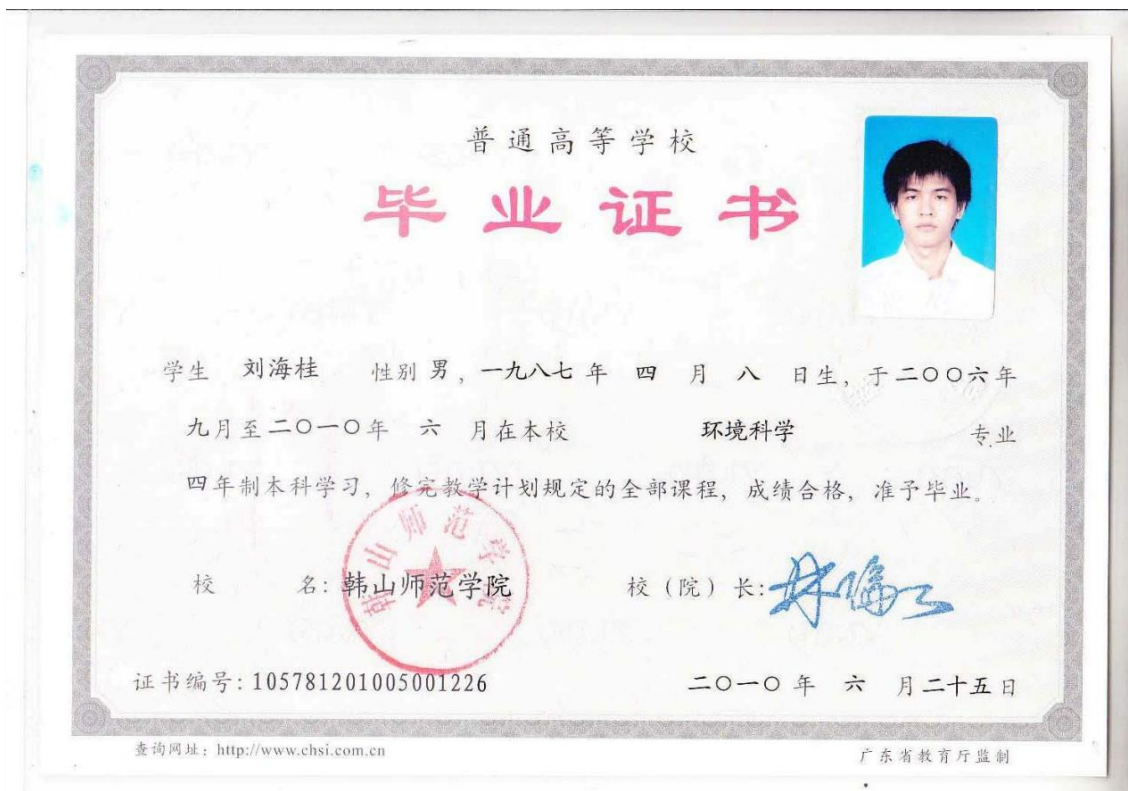 普通高等学校
毕业证书
学生 刘海桂 性别 男，一九八七年 四 月 八 日生，于二〇〇六年
九月至二〇一〇年 六 月在本校 环境科学 专业
四年制本科学习，修完教学计划规定的全部课程，成绩合格，准予毕业。
韩山师范学院
校 名：韩山师范学院 校（院）长：林伦伦
证书编号：105781201005001226 二〇一〇年 六 月二十五日
查询网址：http://www.chsi.com.cn 广东省教育厅监制